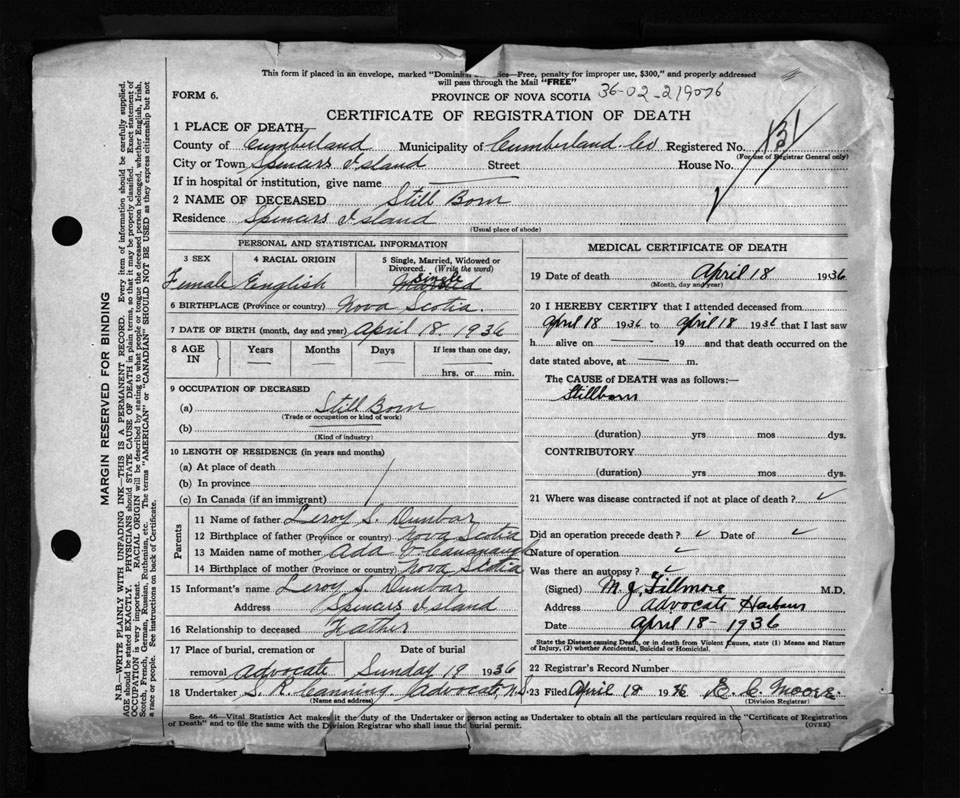 This form if placed in an envelope, marked "Dominion Statistics—Free, penalty for improper use, $300," and properly addressed
will pass through the Mail "FREE"
FORM 6.
PROVINCE OF NOVA SCOTIA 36-02-219076
CERTIFICATE OF REGISTRATION OF DEATH
1 PLACE OF DEATH
County of Cumberland Municipality of Cumberland Co Registered No. 131
(For use of Registrar General only)
City or Town Spencers Island Street House No.
If in hospital or institution, give name
2 NAME OF DECEASED Still Born
Residence Spencers Island
(Usual place of abode)
PERSONAL AND STATISTICAL INFORMATION
3 SEX 4 RACIAL ORIGIN 5 Single, Married, Widowed or
Divorced. (Write the word)
Single
Female English
6 BIRTHPLACE (Province or country) Nova Scotia.
7 DATE OF BIRTH (month, day and year) April 18. 1936
8 AGE IN Years Months Days If less than one day,
hrs. or min.
9 OCCUPATION OF DECEASED
(a) Still Born
(Trade or occupation or kind of work)
(b)
(Kind of industry)
10 LENGTH OF RESIDENCE (in years and months)
(a) At place of death
(b) In province
(c) In Canada (if an immigrant)
Parents
11 Name of father Leroy S. Dunbar
12 Birthplace of father (Province or country) Nova Scotia
13 Maiden name of mother Ada V. Cavanaugh
14 Birthplace of mother (Province or country) Nova Scotia
15 Informant's name Leroy S. Dunbar
Address Spencers Island
16 Relationship to deceased Father
17 Place of burial, cremation or Date of burial
removal Advocate Sunday 19 1936
18 Undertaker S. R. Canning Advocate, N.S.
(Name and address)
MEDICAL CERTIFICATE OF DEATH
19 Date of death April 18 1936
(Month, day and year)
20 I HEREBY CERTIFY that I attended deceased from
April 18 1936 to April 18 1936 that I last saw
h alive on 19 and that death occurred on the
date stated above, at m.
The CAUSE of DEATH was as follows:—
Stillborn
(duration) yrs mos dys.
CONTRIBUTORY
(duration) yrs mos dys.
21 Where was disease contracted if not at place of death?
Did an operation precede death? Date of
Nature of operation
Was there an autopsy?
(Signed) M. J. Fillmore M.D.
Address Advocate Harbour
Date April 18 - 1936
State the Disease causing Death, or in death from Violent Causes, state (1) Means and Nature
of Injury, (2) whether Accidental, Suicidal or Homicidal.
22 Registrar's Record Number
23 Filed April 18 1936 E. C. Moore.
(Division Registrar)
Sec. 46—Vital Statistics Act makes it the duty of the Undertaker or person acting as Undertaker to obtain all the particulars required in the "Certificate of Registration
of Death" and to file the same with the Division Registrar who shall issue the burial permit.
(OVER)
MARGIN RESERVED FOR BINDING
N.B.—WRITE PLAINLY WITH UNFADING INK—THIS IS A PERMANENT RECORD. Every item of information should be carefully supplied.
AGE should be stated EXACTLY. PHYSICIANS should STATE CAUSE OF DEATH in plain terms, so that it may be properly classified. Exact statement of
OCCUPATION is very important. RACIAL ORIGIN will be described by stating to what people or tongue the deceased person belonged, whether English, Irish,
Scotch, French, German, Russian, Ruthenian, etc. The terms "AMERICAN" or "CANADIAN" SHOULD NOT BE USED as they express citizenship but not
a race or people. See instructions on back of Certificate.